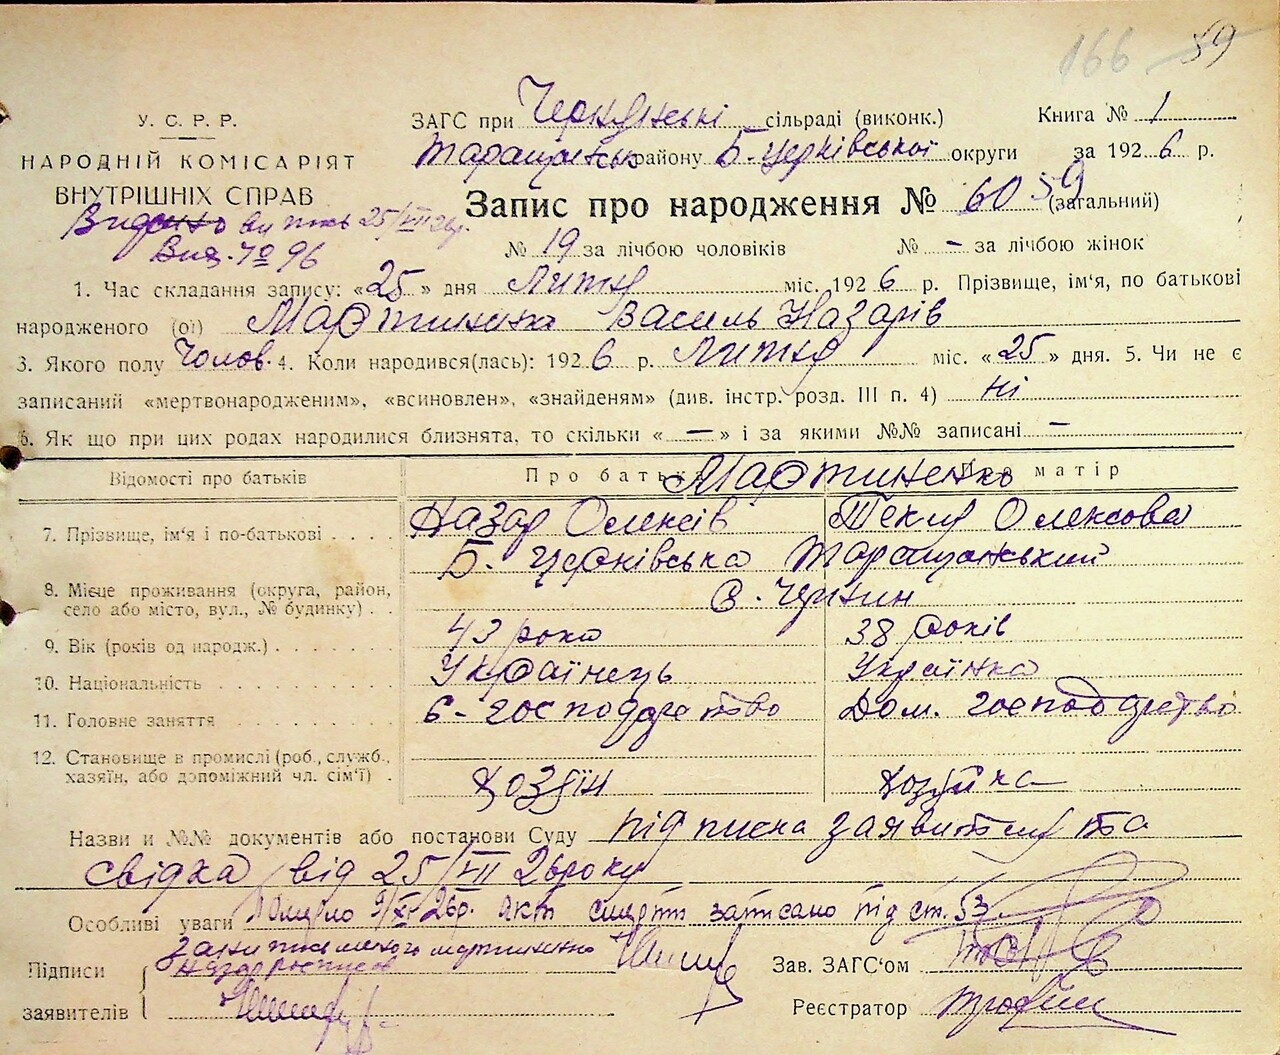 166 59
У. С. Р. Р.
НАРОДНІЙ КОМІСАРІЯТ
ВНУТРІШНІХ СПРАВ
Видано випись 25/VII 26р.
Вид. № 96
ЗАГС при Чернинські сільраді (виконк.) Книга № 1
Таращанськ району Б-церківської округи за 1926 р.
Запис про народження № 60 59 (загальний)
№ 19 за лічбою чоловіків № — за лічбою жінок
1. Час складання запису: «25» дня Липня міс. 1926 р. Прізвище, ім'я, по батькові
народженого (ої) Мартиненко Василь Назарів
3. Якого полу Чолов. 4. Коли народився(лась): 1926 р. Липня міс. «25» дня. 5. Чи не є
записаний «мертвонародженим», «всиновлен», «знайденям» (див. інстр. розд. III п. 4) ні
6. Як що при цих родах народилися близнята, то скільки «—» і за якими №№ записані —
Відомості про батьків Про батька Про матір
Мартиненко
7. Прізвище, ім'я і по-батькові Назар Олексів Текля Олексова
8. Місце проживання (округа, район, село або місто, вул., № будинку) Б. церківська Таращанський
с. Чернин
9. Вік (років од народж.) 43 роки 38 років
10. Національність Українець Українка
11. Головне заняття С-господарство Дом. господарство
12. Становище в промислі (роб., служб., хазяїн, або допоміжний чл. сім'ї) Хозяїн Хозяйка
Назви и №№ документів або постанови Суду підписка заявителя та
свідка від 25/VII 26 року
Особливі уваги Померло 9/XI 26р. Акт смерти записано під ст. 53
Підписи заявителів За неписьменого Мартиненко
Назар росписов
Зав. ЗАГС'ом
Реєстратор